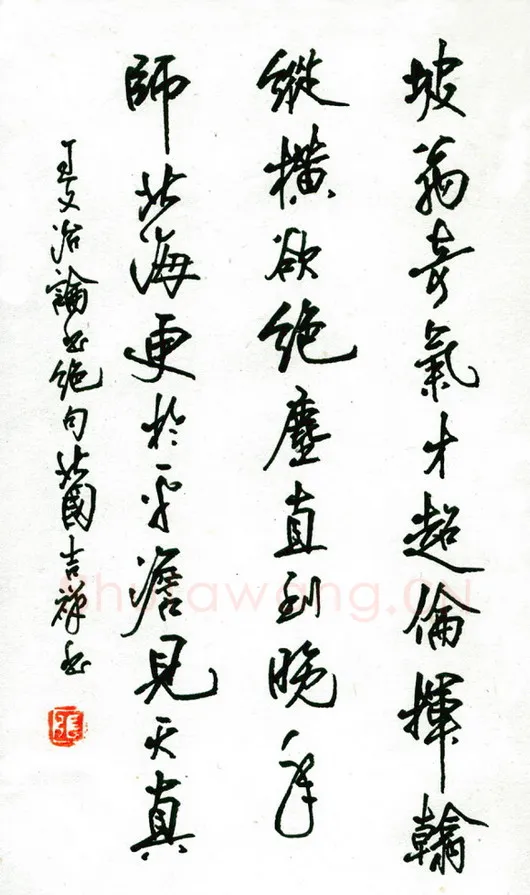 坡翁奇氣才超倫揮翰
縱橫欲絶塵直到晚年
師北海更於平澹見天真
王文治論書絕句北國吉祥書
張
Shufawang.CN